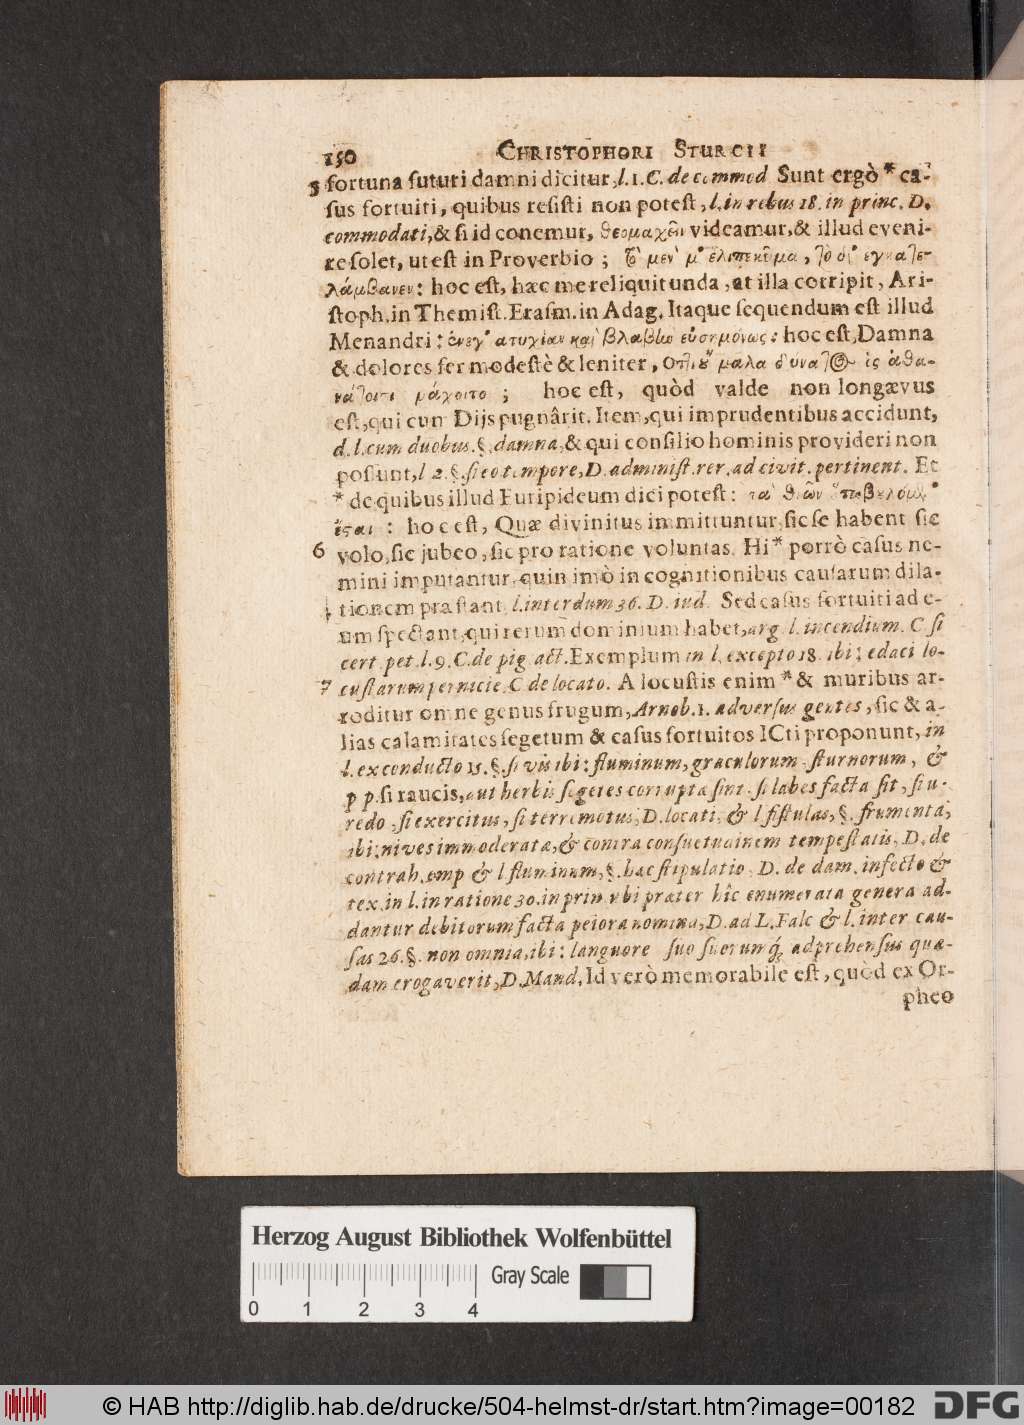 150 CHRISTOPHORI STURCII
5 fortuna futuri damni dicitur, l. 1. C. de commod. Sunt ergò * ca-
sus fortuiti, quibus resisti non potest, l. in rebus 18. in princ. D.
commodati, & si id conemur, videamur, & illud eveni-
re solet, ut est in Proverbio;
λάμβανεν: hoc est, hæc me reliquit unda, at illa corripit, Ari-
stoph. in Themist. Erasm. in Adag. Itaque sequendum est illud
Menandri: hoc est, Damna
& dolores fer modestè & leniter, μαλα
μάχοιτο; hoc est, quòd valde non longævus
est, qui cum Dijs pugnârit. Item, qui imprudentibus accidunt,
d. l. cum duobus. §. damna, & qui consilio hominis provideri non
possunt, l 2. §. si eo tempore, D. administ. rer. ad civit. pertinent. Et
* de quibus illud Euripideum dici potest:
hoc est, Quæ divinitus immittuntur, sic se habent sic
6 volo, sic jubeo, sic pro ratione voluntas. Hi * porrò casus ne-
mini imputantur, quin imò in cognitionibus causarum dila-
tionem præstant, l. interdum 36. D. iud. Sed casus fortuiti ad e-
um spectant, qui rerum dominium habet, arg l. incendium. C si
cert. pet. l. 9. C. de pig act. Exemplum in l. excepto 18. ibi: edaci lo-
7 custarum pernicie. C de locato. A locustis enim * & muribus ar-
roditur omne genus frugum, Arnob. 1. adversus gentes, sic & a-
lias calamitates segetum & casus fortuitos ICti proponunt, in
l. ex conducto 15. §. si vis ibi: fluminum, graculorum, sturnorum, &
p p. si raucis, aut herbis segetes corrupta sint, si labes facta sit, si u-
redo, si exercitus, si terremotus, D. locati, & l fistulas, §. frumenta,
ibi: nives immoderatæ, & contra consuetudinem tempestatis, D. de
contrah. emp & l fluminum, §. hac stipulatio, D. de dam. infecto &
tex. in l. in ratione 30. in prin. ubi præter hîc enumerata genera ad-
dantur debitorum facta peiora nomina, D. ad L. Falc & l. inter cau-
sas 26. §. non omnia, ibi: languore suo suorumq́; adprehensus quæ-
dam erogaverit, D. Mand. Id verò memorabile est, quòd ex Or-
pheo
Herzog August Bibliothek Wolfenbüttel
Gray Scale
0 1 2 3 4
© HAB http://diglib.hab.de/drucke/504-helmst-dr/start.htm?image=00182 DFG